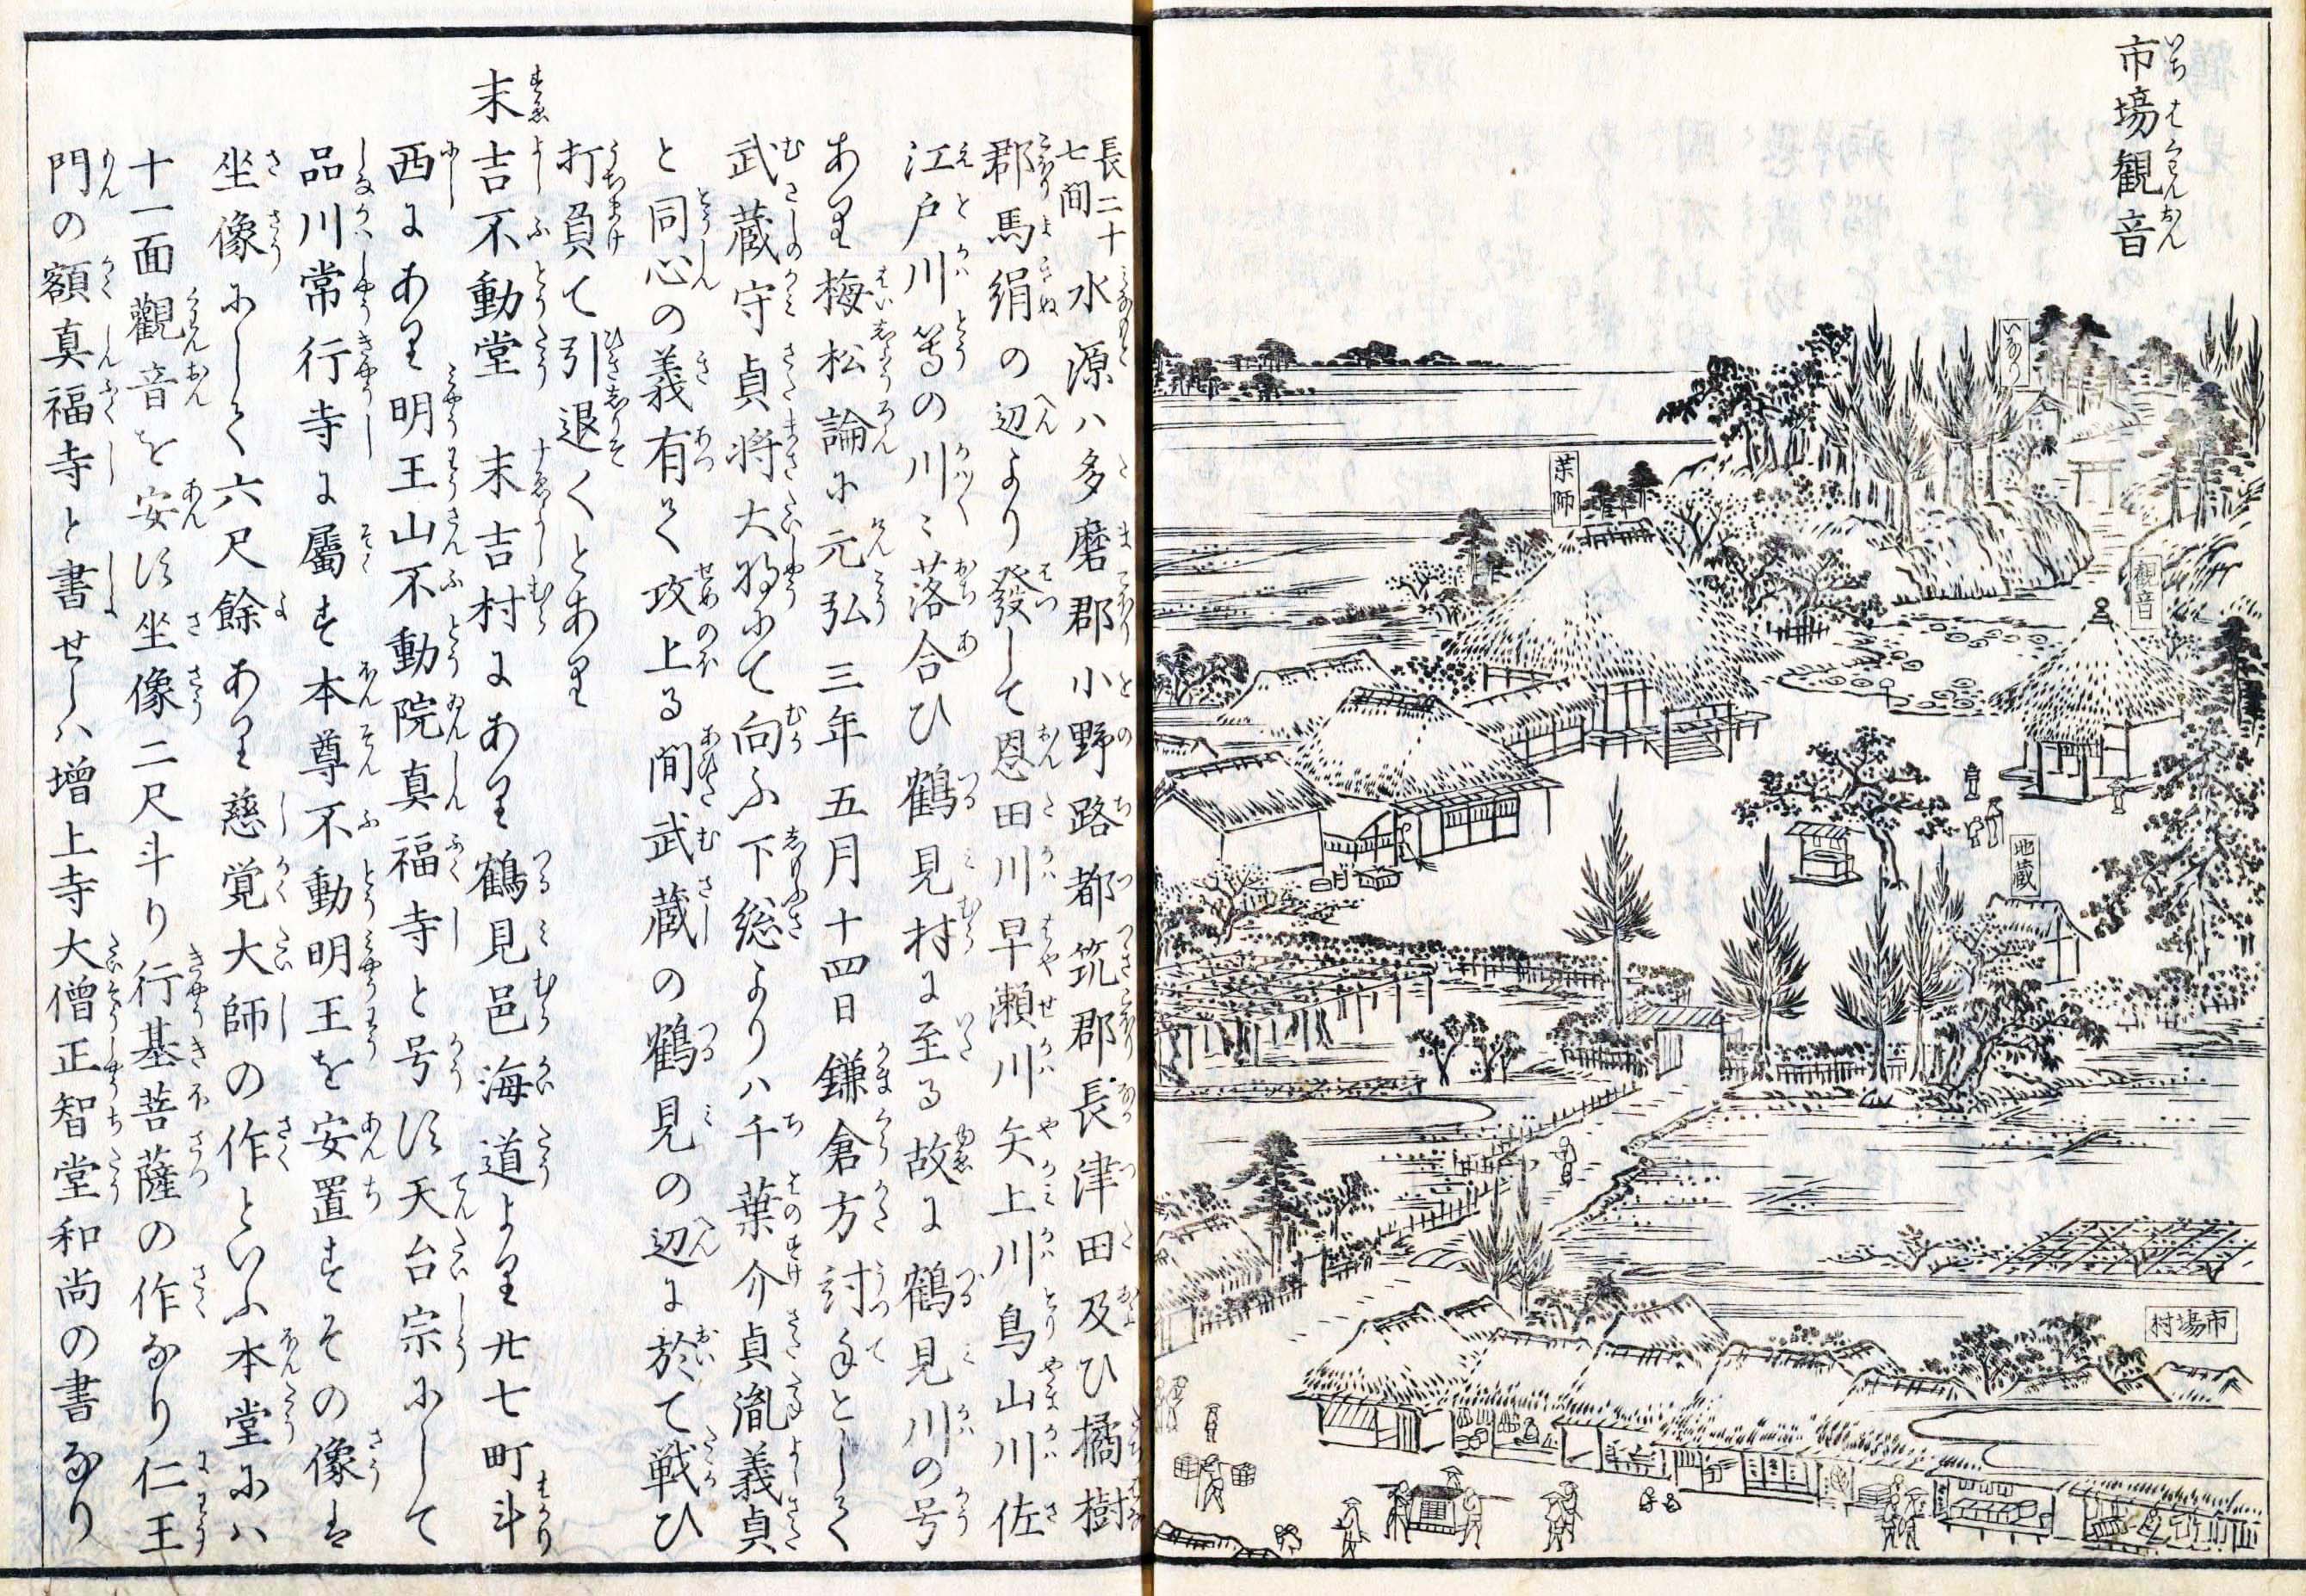 市場観音
いなり
薬師
観音
地蔵
市場村
長二十
七間
水源ハ多磨郡小野路都筑郡長津田及ひ橘樹
郡馬絹の辺より發して恩田川早瀬川矢上川鳥山川佐
江戸川等の川〻落合ひ鶴見村に至る故に鶴見川の号
あり梅松論に元弘三年五月十四日鎌倉方討手として
武蔵守貞将大将にて向ふ下総よりハ千葉介貞胤義貞
と同心の義有て攻上る間武蔵の鶴見の辺に於て戦ひ
打負て引退くとあり
末吉不動堂　末吉村にあり鶴見邑海道より廿七町斗
西にあり明王山不動院真福寺と号す天台宗にして
品川常行寺に属す本尊不動明王を安置すその像は
坐像にして六尺餘あり慈覚大師の作といふ本堂にハ
十一面觀音を安す坐像二尺斗り行基菩薩の作なり仁王
門の額真福寺と書せしハ増上寺大僧正智堂和尚の書なり